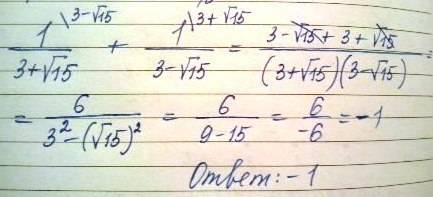 1\3-√15 / 3+√15 + 1\3+√15 / 3-√15 = 3-√15+3+√15 / (3+√15)(3-√15) =
= 6 / 3²-(√15)² = 6 / 9-15 = 6 / -6 = -1
Ответ: -1